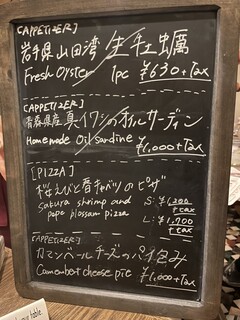 [APPETIZER]
岩手県山田湾 生牡蠣
Fresh Oyster 1pc ¥630+Tax
[APPETIZER]
青森県産 真イワシのオイルサーディン
Homemade Oil Sardine ¥1,000+Tax
[PIZZA]
桜えびと春キャベツのピザ
Sakura shrimp and S: ¥1,200 +tax
pape blossam pizza L: ¥1,900 +tax
[APPETIZER]
カマンベールチーズのパイ包み
Camembert cheese pie ¥1,000+Tax